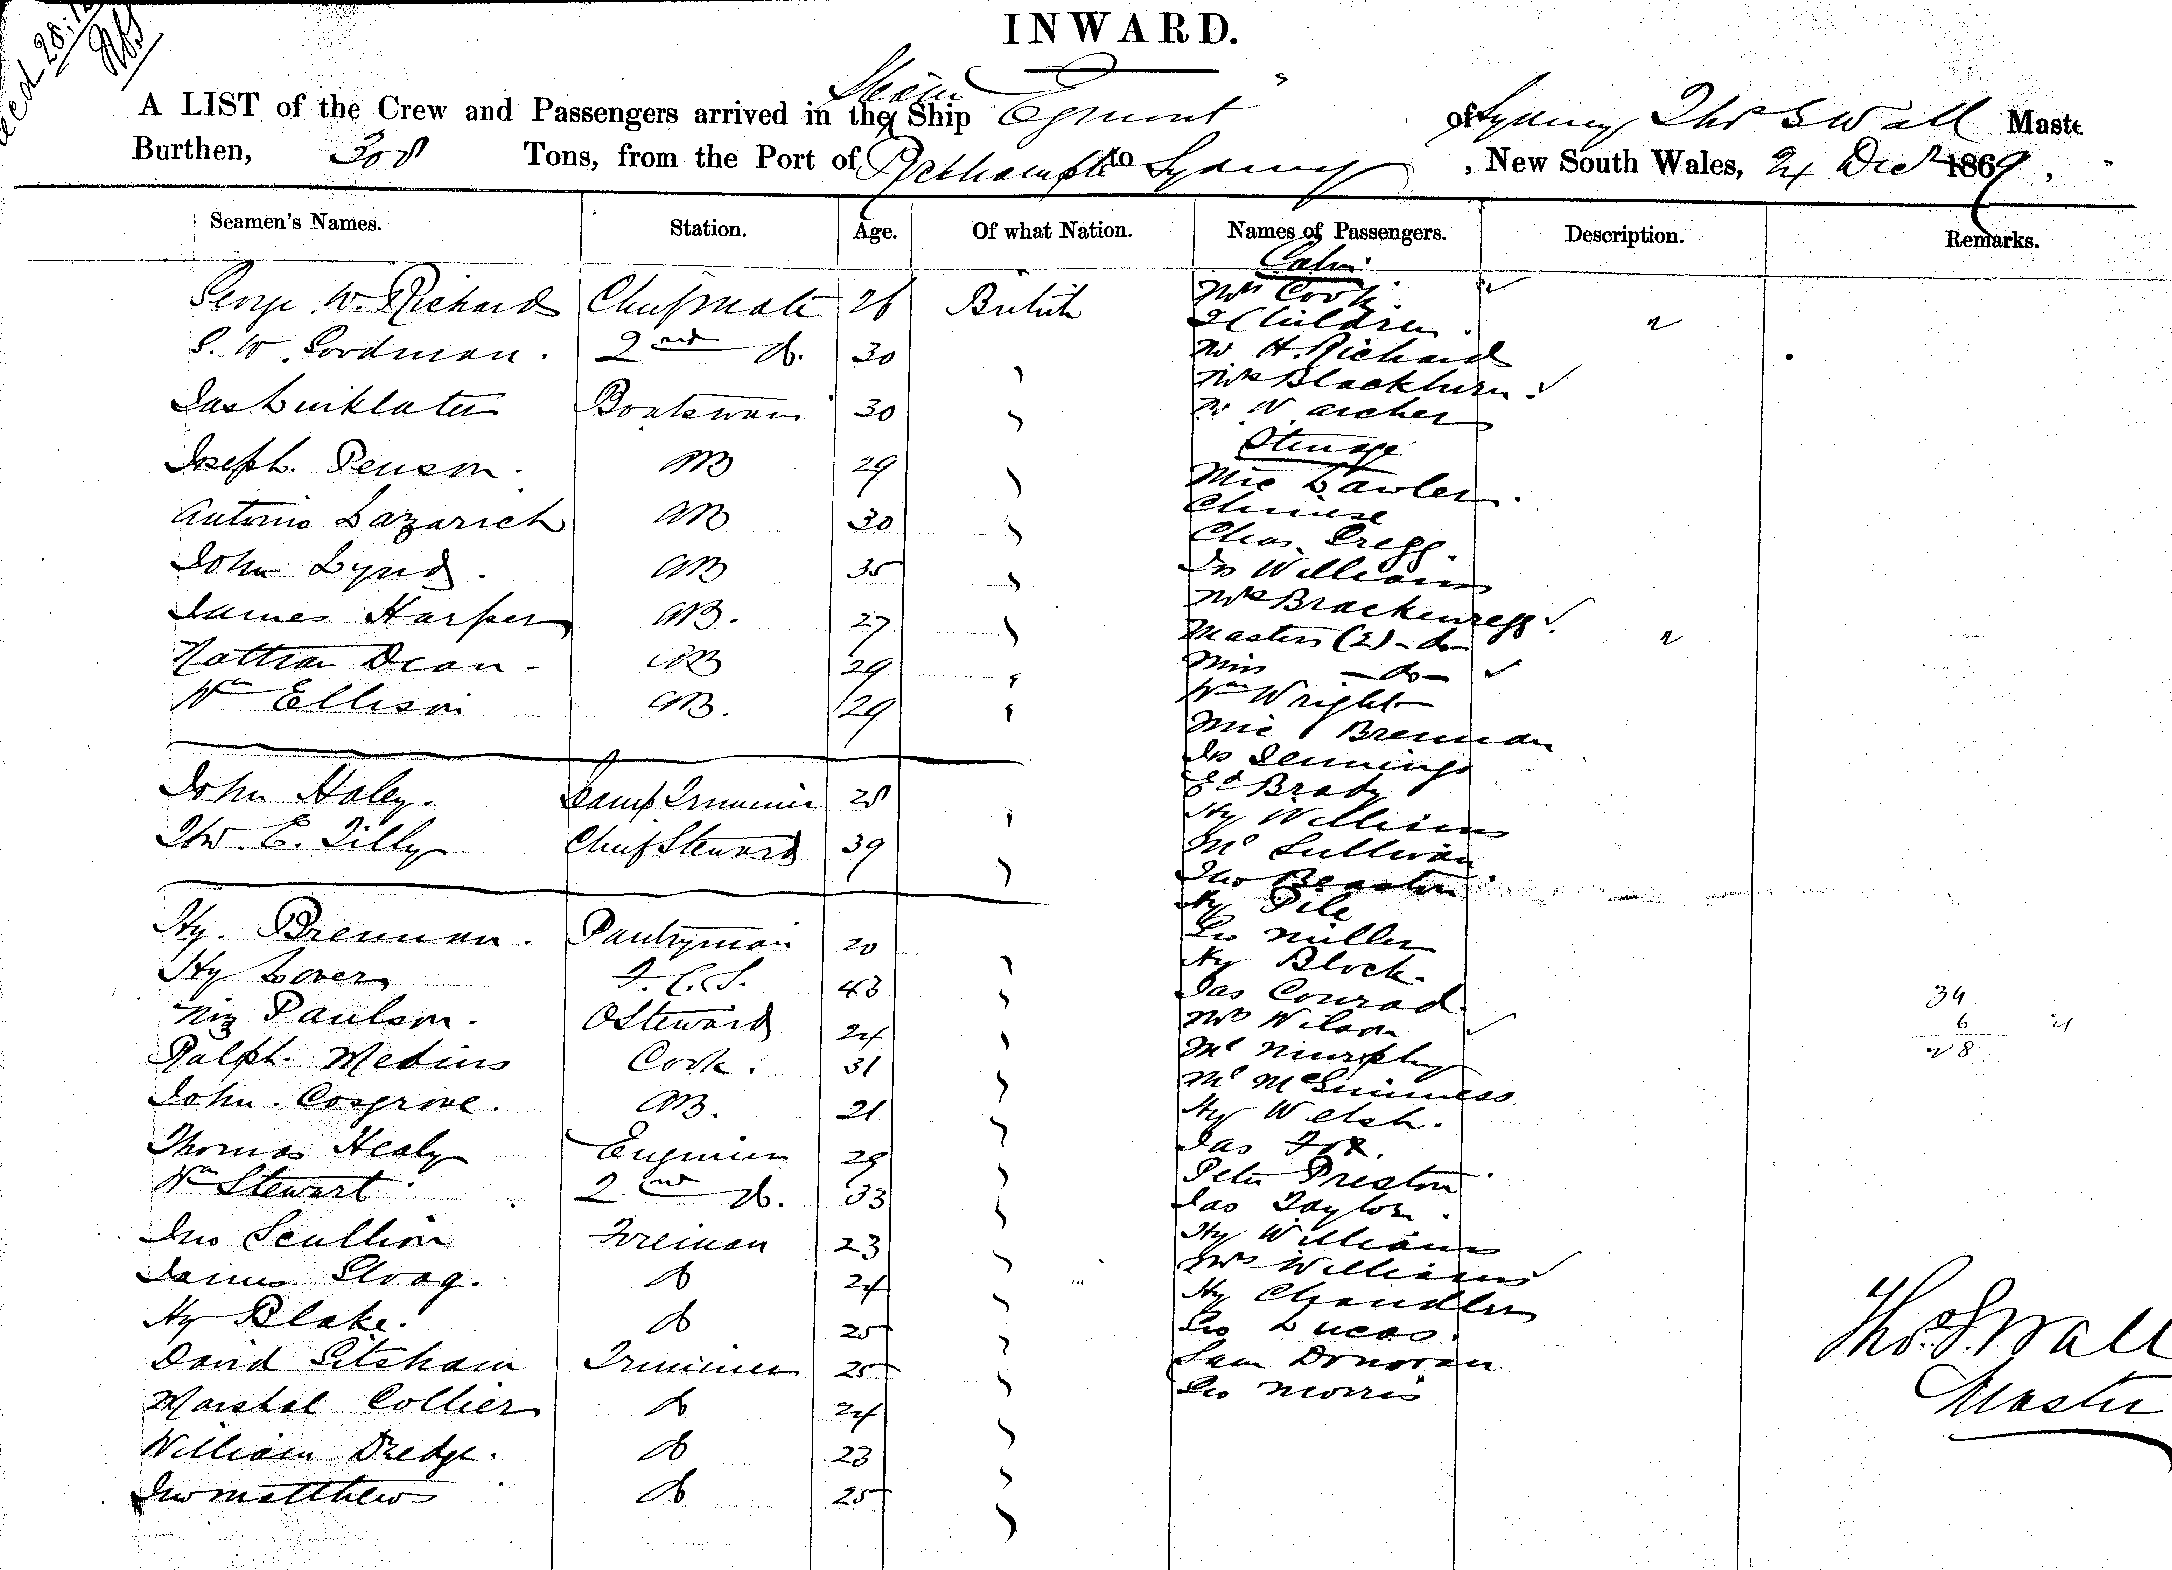 INWARD.
A LIST of the Crew and Passengers arrived in the Steam Ship "Egmont" of Sydney Thos S Wall Maste
Burthen, 308 Tons, from the Port of Rockhampt to Sydney, New South Wales, 24 Decr 1869.
Seamen's Names. Station. Age. Of what Nation. Names of Passengers. Description. Remarks.
Cabin
George W. Richard Chief Mate 26 British Mrs Cook
2 Children
S. W. Goodman. 2nd do. 30 Mr H. Richard
Mrs Blackburn
Jas Linklater Boatswain 30 Mr W Archer
Steerage
Joseph Penson AB 29 Mic Lawler
Antonio Lazarich AB 30 Chinese
Chas Gregg.
John Lynd. AB 35 Jno Williams
James Harper AB. 27 Mrs Brackenregg
Masters (2) - do -
Nathan Dean - AB 29 Miss - do -
Wm Ellison AB. 29 Wm Wright
Mic Brennan
Jas Jennings
John Haley. Lamp Trimmer 28 Ed Brady
Hy Williams
Thos. E. Tilly Chief Steward 39 Ml Sullivan
Thos Beaston
Hy Pile
Hy. Brennan. Pantryman 20 Geo Miller
Hy Lover F. C. S. 43 Hy Block.
Jas Conrad.
Paulson. O Steward 24 Mrs Wilson
Ralph Medins Cook. 31 Ml Murphy
John Cosgrove. AB. 21 Ml McGuinness
Hy Welsh.
Thomas Healy Engineer 29 Jas Fox.
Wm Stewart 2nd do. 33 Peter Preston
Jas Taylor.
Jno Scullion Fireman 23 Hy Williams
James do 24 Mrs Williams
Hy Chandler
Hy Blake. do 25 Geo Lucas.
David Titsham Trimmer 25 Sam Donovan
Marshal Collier do 24 Geo Morris
William Dredge. do 23
Jno Matthews do 25
34
6
28
Thos. S. Wall
Master